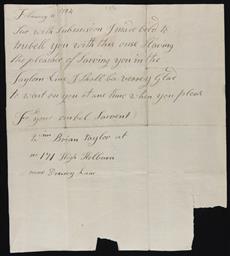 Sir with submision I make bold to
trubell you with this one Having
the pleasher of Sarving you in the
Taylor Line I Shall be verrey Glad
to wait on you at any time when you pleas
your umbel Sarvent
Brian Taylor at
no 171 High Holburn
near Drurey Lane